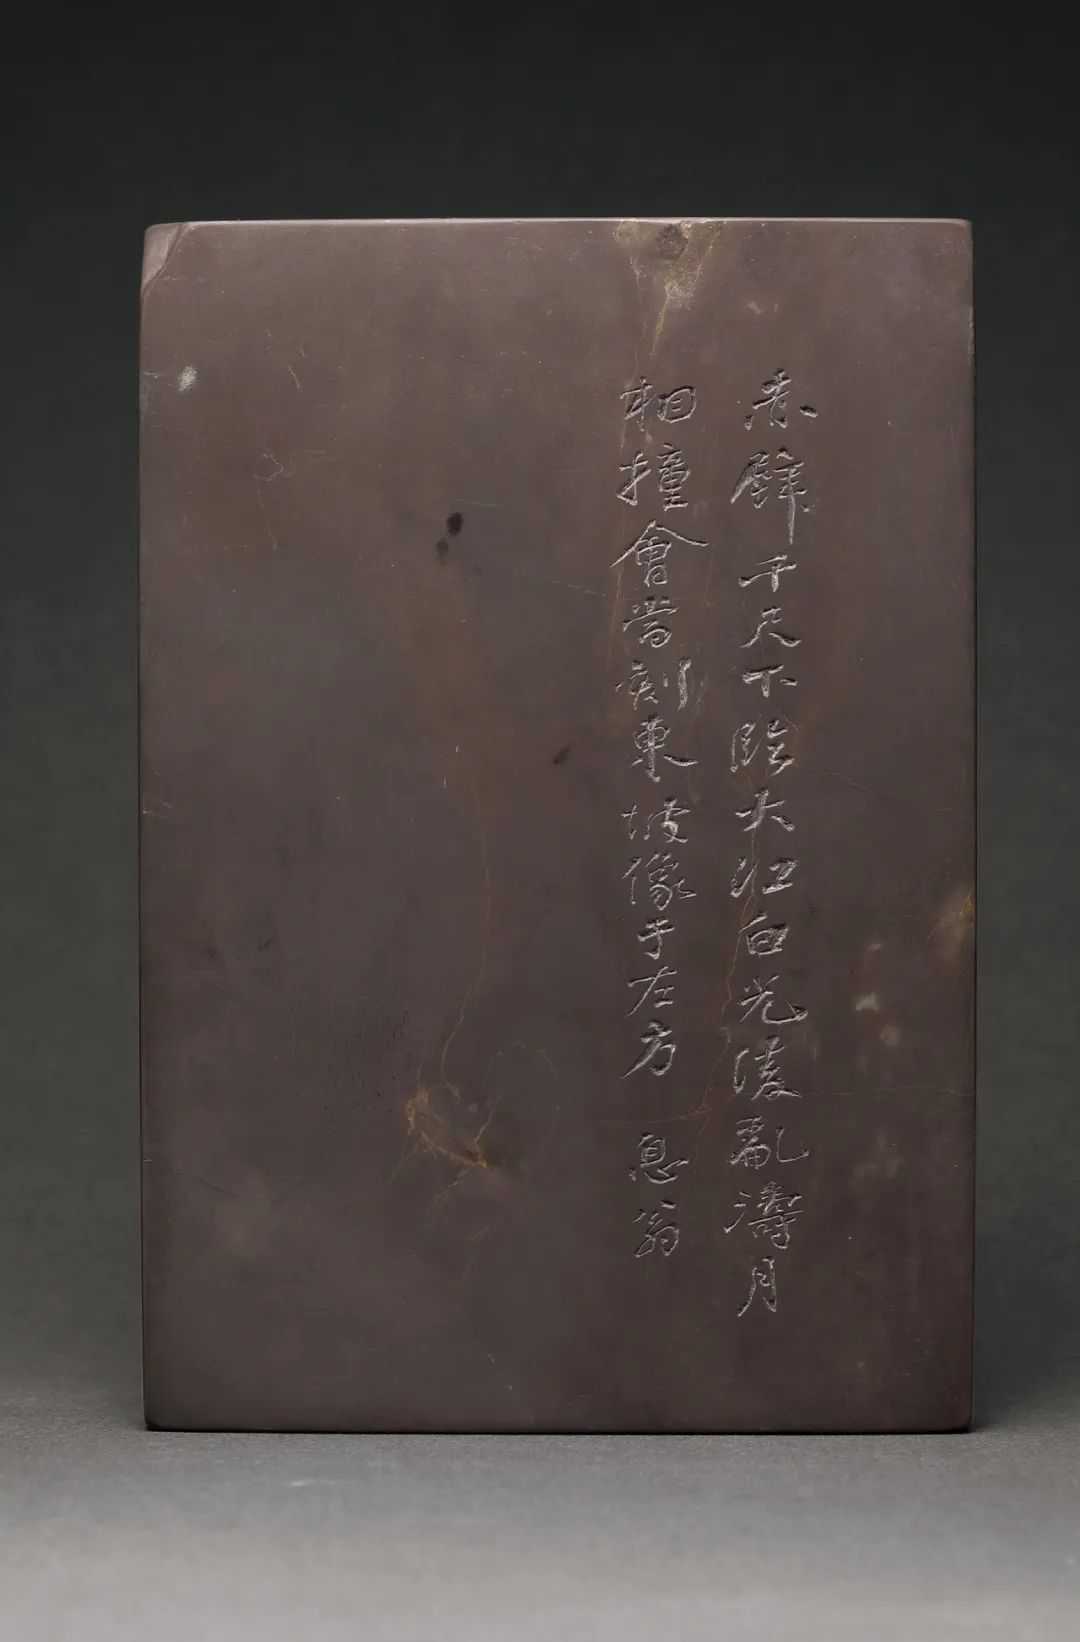 赤壁千尺下臨大江白光凌亂濤月
相撞會當刻東坡像于左方 息翁